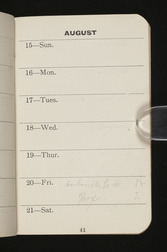 AUGUST
15—Sun.
16—Mon.
17—Tues.
18—Wed.
19—Thur.
20—Fri.
21—Sat.
41